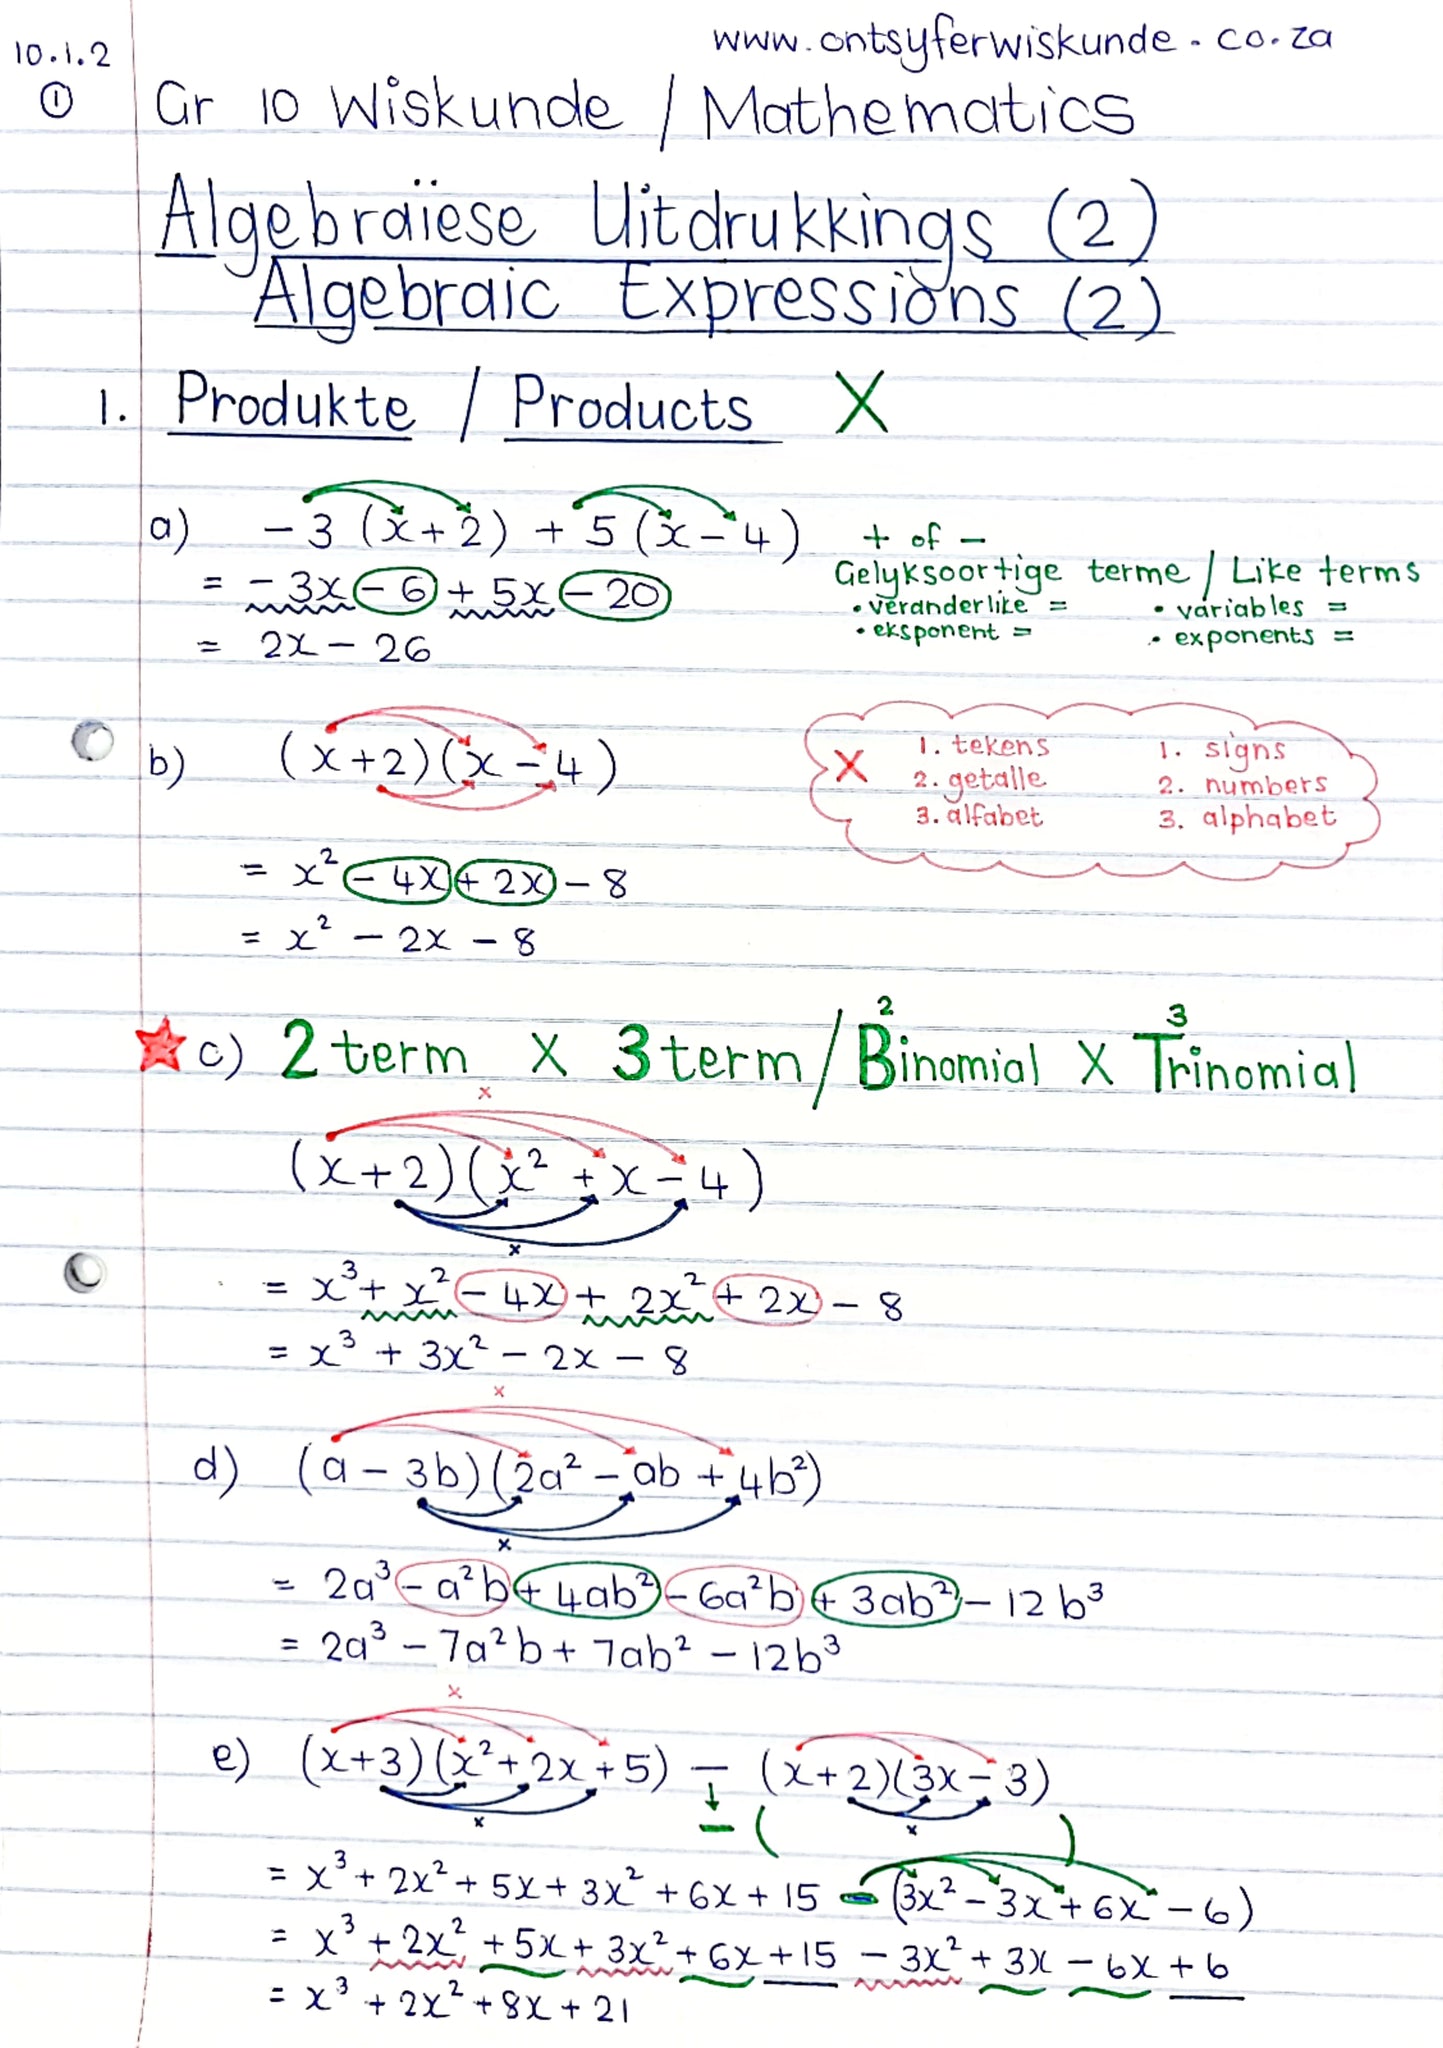 www.ontsyferwiskunde.co.za
10.1.2
① Gr 10 Wiskunde / Mathematics
Algebraïese Uitdrukkings (2)
Algebraic Expressions (2)
1. Produkte / Products X
a) -3 (x + 2) + 5 (x - 4)
= -3x - 6 + 5x - 20
= 2x - 26
+ of -
Gelyksoortige terme / Like terms
• veranderlike = • variables =
• eksponent = • exponents =
b) (x + 2)(x - 4)
= x² - 4x + 2x - 8
= x² - 2x - 8
X
1. tekens 1. signs
2. getalle 2. numbers
3. alfabet 3. alphabet
c) 2 term X 3 term / Binomial X Trinomial
2 3
x
(x + 2)(x² + x - 4)
x
= x³ + x² - 4x + 2x² + 2x - 8
= x³ + 3x² - 2x - 8
x
d) (a - 3b)(2a² - ab + 4b²)
x
= 2a³ - a²b + 4ab² - 6a²b + 3ab² - 12b³
= 2a³ - 7a²b + 7ab² - 12b³
x
e) (x + 3)(x² + 2x + 5) - (x + 2)(3x - 3)
x - ( x )
= x³ + 2x² + 5x + 3x² + 6x + 15 - (3x² - 3x + 6x - 6)
= x³ + 2x² + 5x + 3x² + 6x + 15 - 3x² + 3x - 6x + 6
= x³ + 2x² + 8x + 21